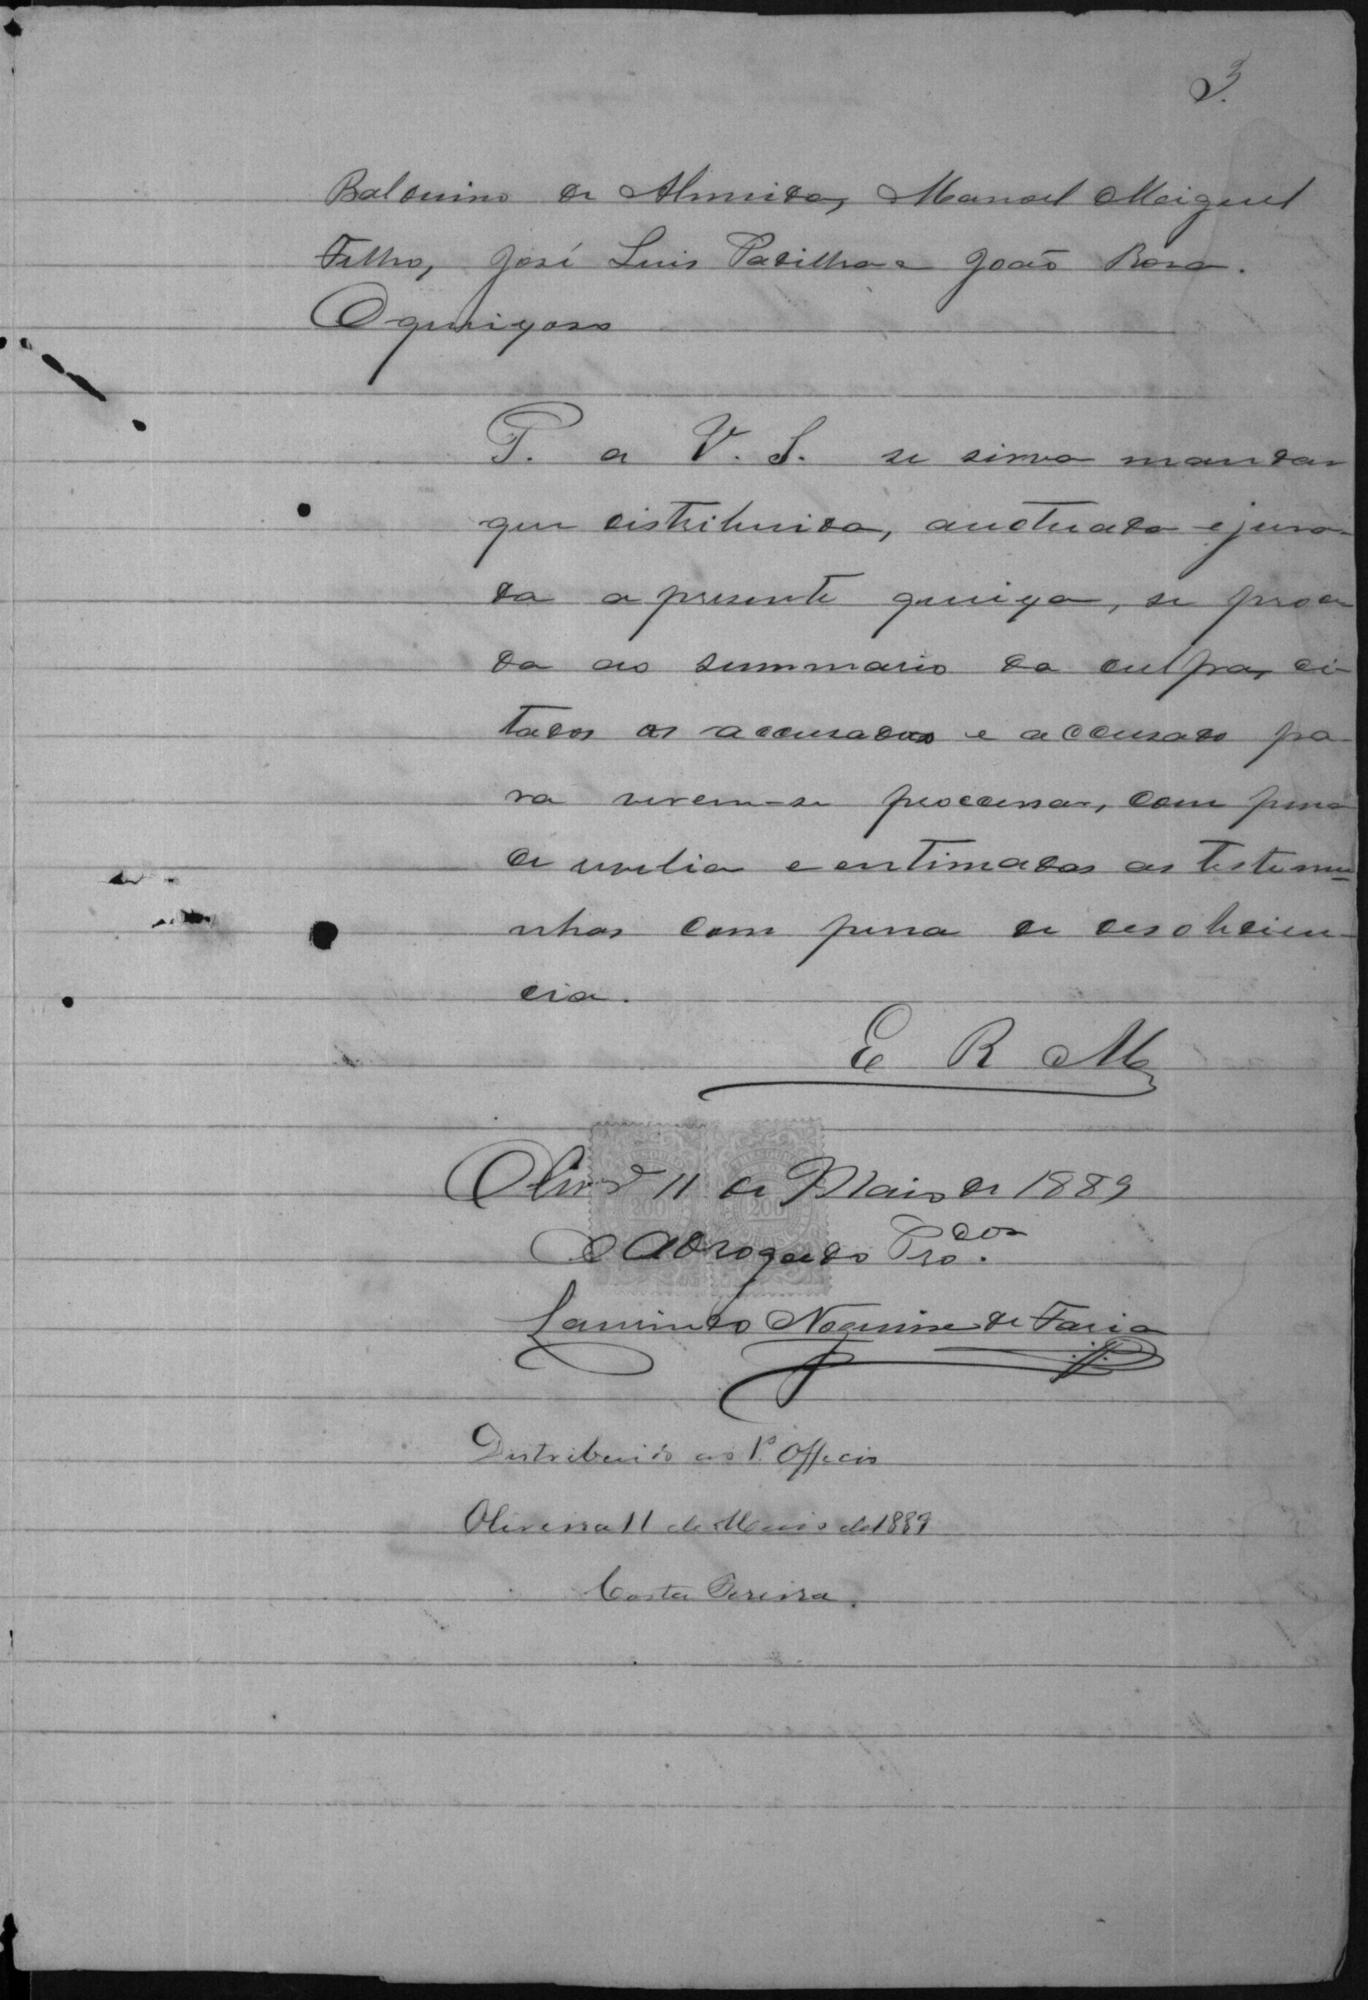 3.
Balduino de Almeida, Manoel Meiguel
Filho, José Luis Padilha e João Rosa.
O queixoso
P. a V. S. se sirva mandar
que distribuida, auctuada e jura-
da a presente queixa, se proce
da ao summario da culpa, ci-
tados os accusados e accusado pa-
ra verem-se processar, com pena
de revelia e entimadas as testemu-
nhas com pena de desobedien-
cia.
E R M
Olivr.ª 11 de Maio de 1889
O Advogado Pro.dor
Laurindo Nogueira de Faria
Distribuido ao 1º Officio
Oliveira 11 de Maio de 1889
Costa Pereira.